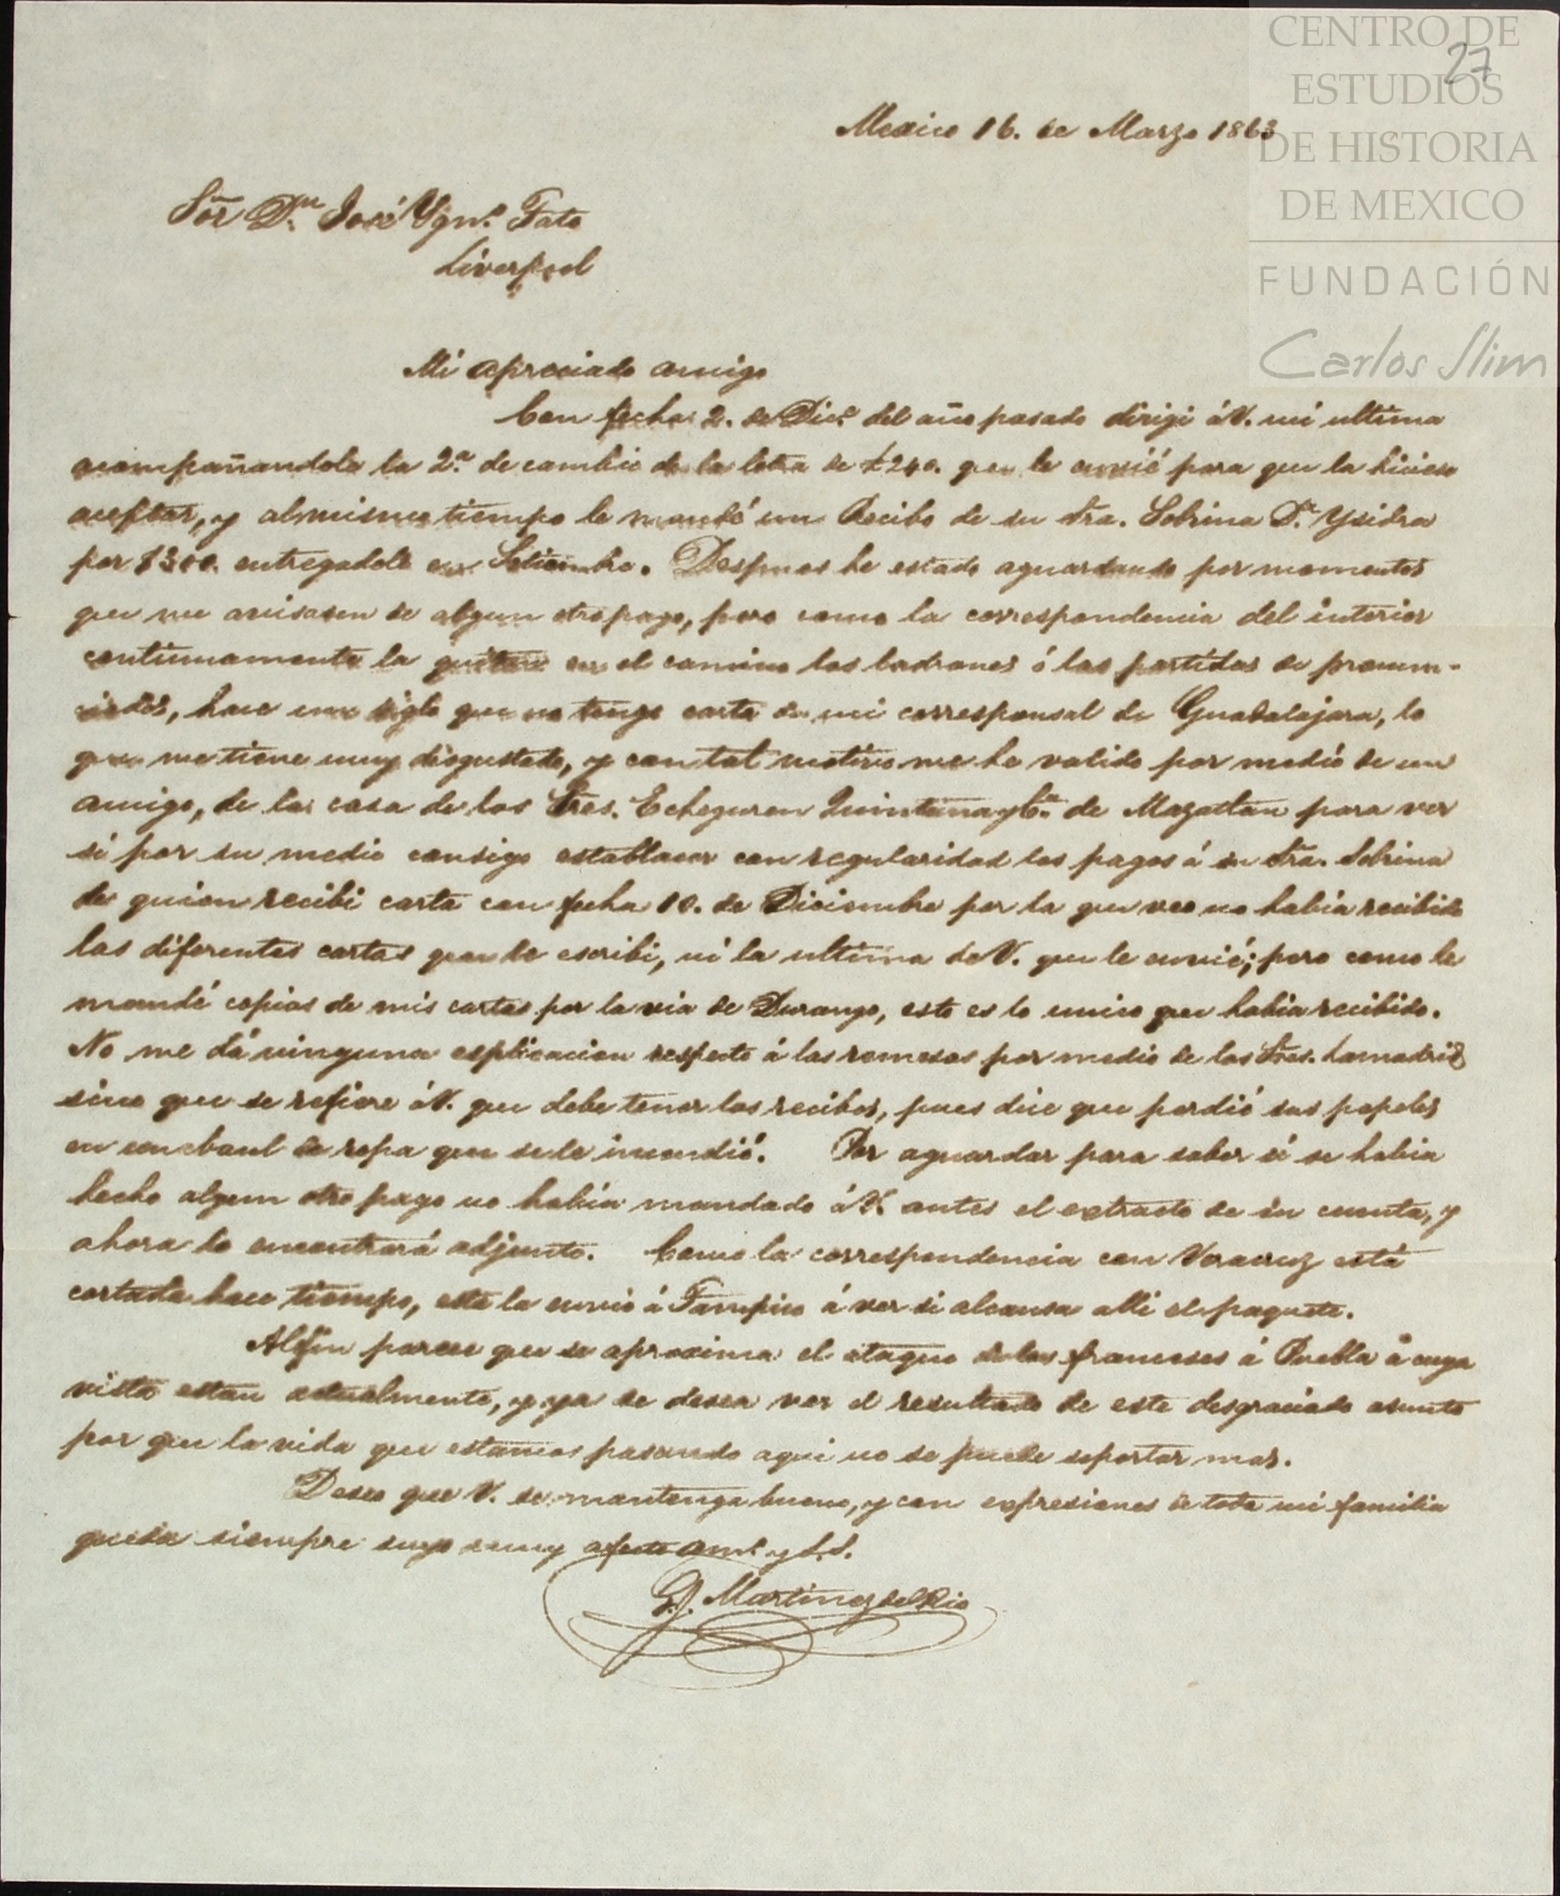 CENTRO DE
ESTUDIOS
DE HISTORIA
DE MEXICO
FUNDACIÓN
Carlos Slim
27
Mexico 16. de Marzo 1863
Sor Dn. José Ygno. Fato
Liverpool
Mi apreciado amigo
Con fecha 2. de Dice. del año pasado dirigi á V. mi ultima
acompañandole la 2.a de cambio de la letra de £240. que le envié para que la hiciese
aceptar, y al mismo tiempo le mandé un Recibo de su Sra. Sobrina Da. Ysidra
por $300. entregadole en Setiembre. Despues he estado aguardando por momentos
que me avisasen de algun otro pago, pero como la correspondencia del interior
continuamente la quitan en el camino los ladrones ó las partidas de pronun-
ciados, hace un siglo que no tengo carta de mi corresponsal de Guadalajara, lo
que me tiene muy disgustado, y con tal motivo me he valido por medio de un
amigo, de la casa de los Sres. Echeguren Quintana y Ca. de Mazatlan para ver
si por su medio consigo establecer con regularidad los pagos á su Sra. Sobrina
de quien recibi carta con fecha 10. de Diciembre por la que veo no habia recibido
las diferentes cartas que le escribi, ni la ultima de V. que le envié; pero como le
mandé copias de mis cartas por la via de Durango, esto es lo unico que habia recibido.
No me dá ninguna esplicacion respecto á las remesas por medio de los Sres. Lamadrid
sino que se refiere á V. que debe tener los recibos, pues dice que perdió sus papeles
en un baul de ropa que se le incendió. Por aguardar para saber si se habia
hecho algun otro pago no habia mandado á V. antes el extracto de su cuenta, y
ahora lo encontrará adjunto. Como la correspondencia con Veracruz está
cortada hace tiempo, esta la envio á Tampico á ver si alcansa alli el paquete.
Al fin parece que se aproxima el ataque de los franceses á Puebla á cuya
vista estan actualmente, y ya se desea ver el resultado de este desgraciado asunto
por que la vida que estamos pasando aqui no se puede soportar mas.
Deseo que V. se mantenga bueno, y con expresiones de toda mi familia
queda siempre suyo muy afecto amo. y S.S.
G. Martinez del Rio